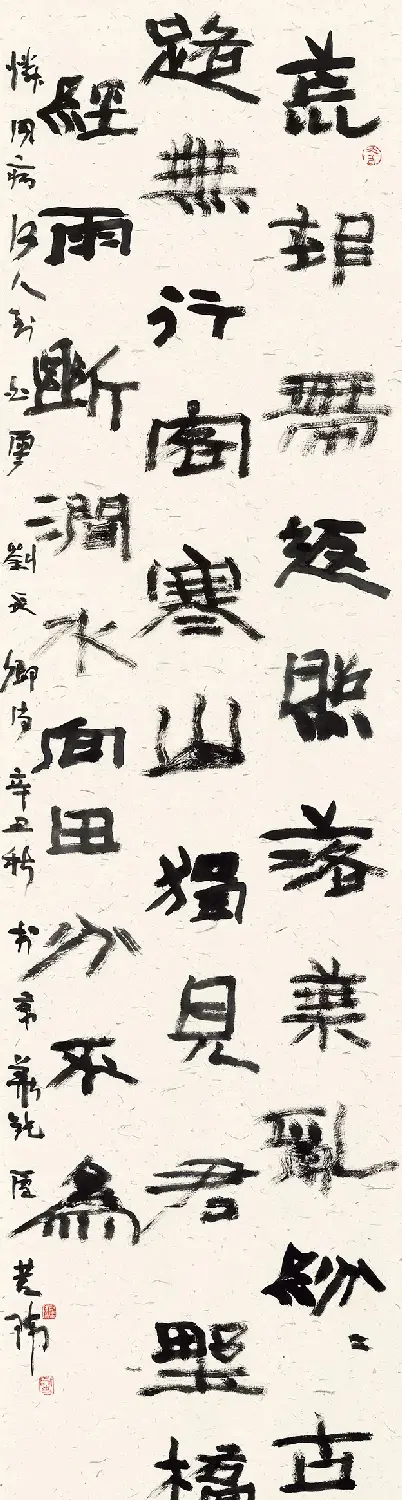 荒邨帶返照落葉亂紛〻古
路無行客寒山獨見君野橋
經雨斷澗水向田分不為
憐同病何人到白雲 劉長卿詩 辛丑秋 於京華